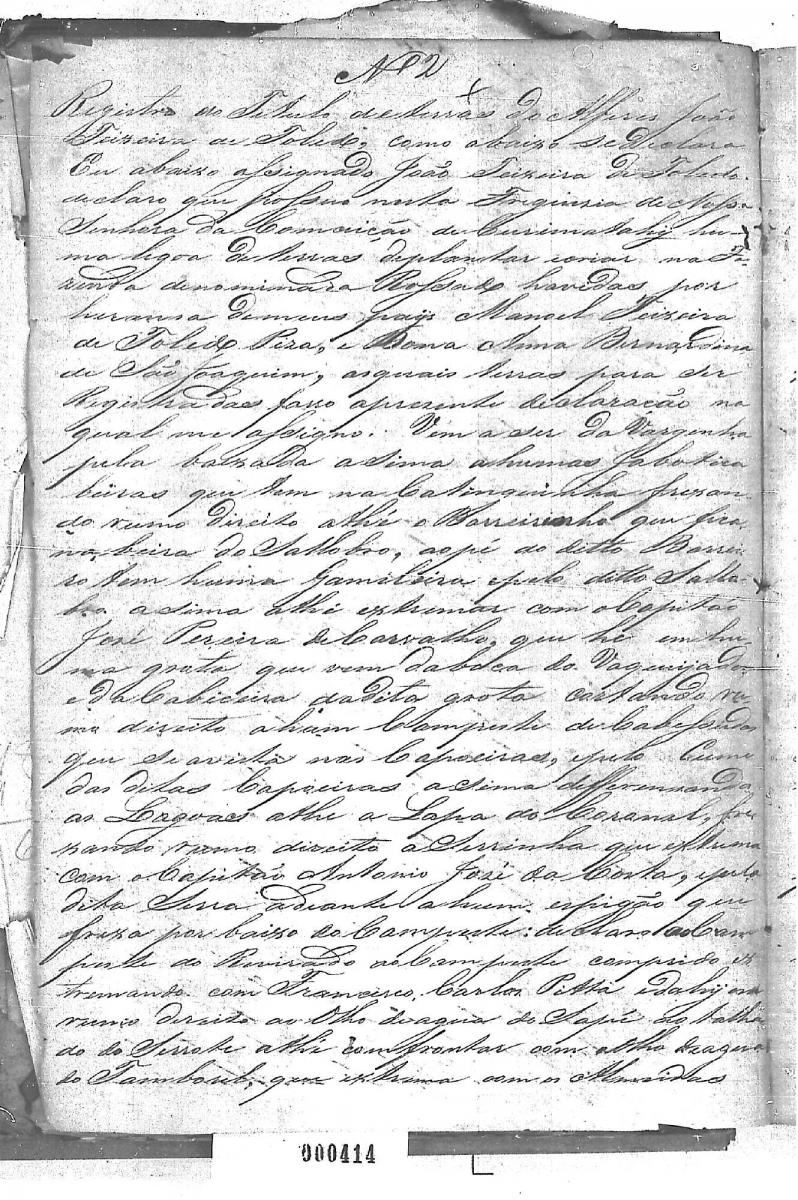 Nº 2
Registro do Titulo de terras do Alferes João
Teixeira de Toledo, como abaixo se declara
Eu abaixo assignado João Teixeira de Toledo
declaro que possuo nesta Freguezia de Nossa
Senhora da Conceição de Curimatahy hu-
ma legoa de terras de plantar e criar na Fa-
zenda denominada Rossado havidas por
heransa de meus pays Manoel Teixeira
de Toledo Piza, e Dona Anna Bernardina
de São Joaquim, as quais terras para ser
Registradas fasso a presente declaração na
qual me assigno. Vem a ser da Vargenha
pela baixada a sima a humas Jabotica
beiras que tem na Catinguinha frexan-
do rumo direito athé o Barreirinho que fica
na beira do Sallobro, ao pé do ditto Barrei
ro tem huma Gamileira e pelo ditto Sallo
bro a sima athe extremar com o Capitão
José Pereira de Carvalho, que hé em hu-
ma grota que vem da boca do Vaqueijador
e da Cabiceira da dita grota cortando ru
mo direito a hum Campeste de Cabessudo
que se avista nas Capoeiras, e pelo Cume
das ditas Capoeiras a sima differensando
as Lagoas athe a Lapa do Coronel, fre
xando rumo direito a Serrinha que extrema
com o Capitão Antonio José da Costa, e pela
dita Serra adeante a hum espigão que
frexa por baixo do Campeste: declaro ao Cam
peste do Revirado ao Campeste comprido ex
tremando com Francisco Carlos Pitta e dahy
rumo direito ao Olho de agua do Sapé do talha
do do Serrote athé comfrontar com o olho de agua
do Tamboril, que extrema com os Almeidas
000414